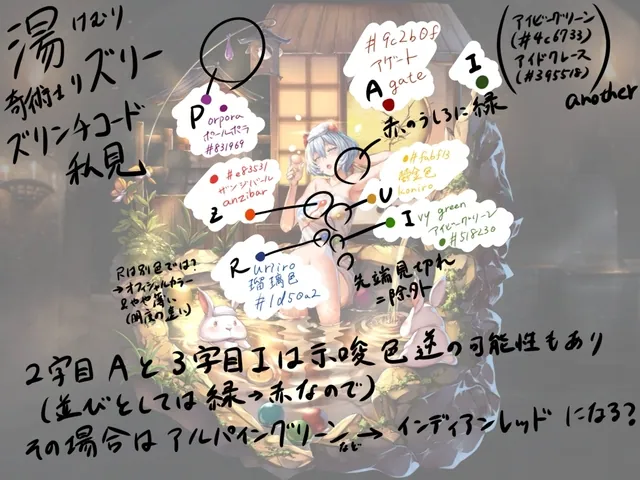 湯けむり
奇術士リズリー
ズリンチコード
私見
#9c2b0f
アゲート
A gate
I
(アイビーグリーン
(#4c6733)
アイドクレース
(#395518))
another
赤のうしろに緑
P orpora
ポールポラ
#831969
#e83531
ザンジバール
Z anzibar
#fabf13
U koniro
I vy green
アイビーグリーン
#518230
R uriiro
瑠璃色
#1d50a2
Rは別色では?
→オフィシャルカラー
よりやや薄い
(明度の違い)
先端見切れ
=除外
2字目Aと3字目Iは示唆色逆の可能性もあり
(並びとしては緑→赤なので)
その場合はアルパイングリーンなど→インディアンレッドになる?